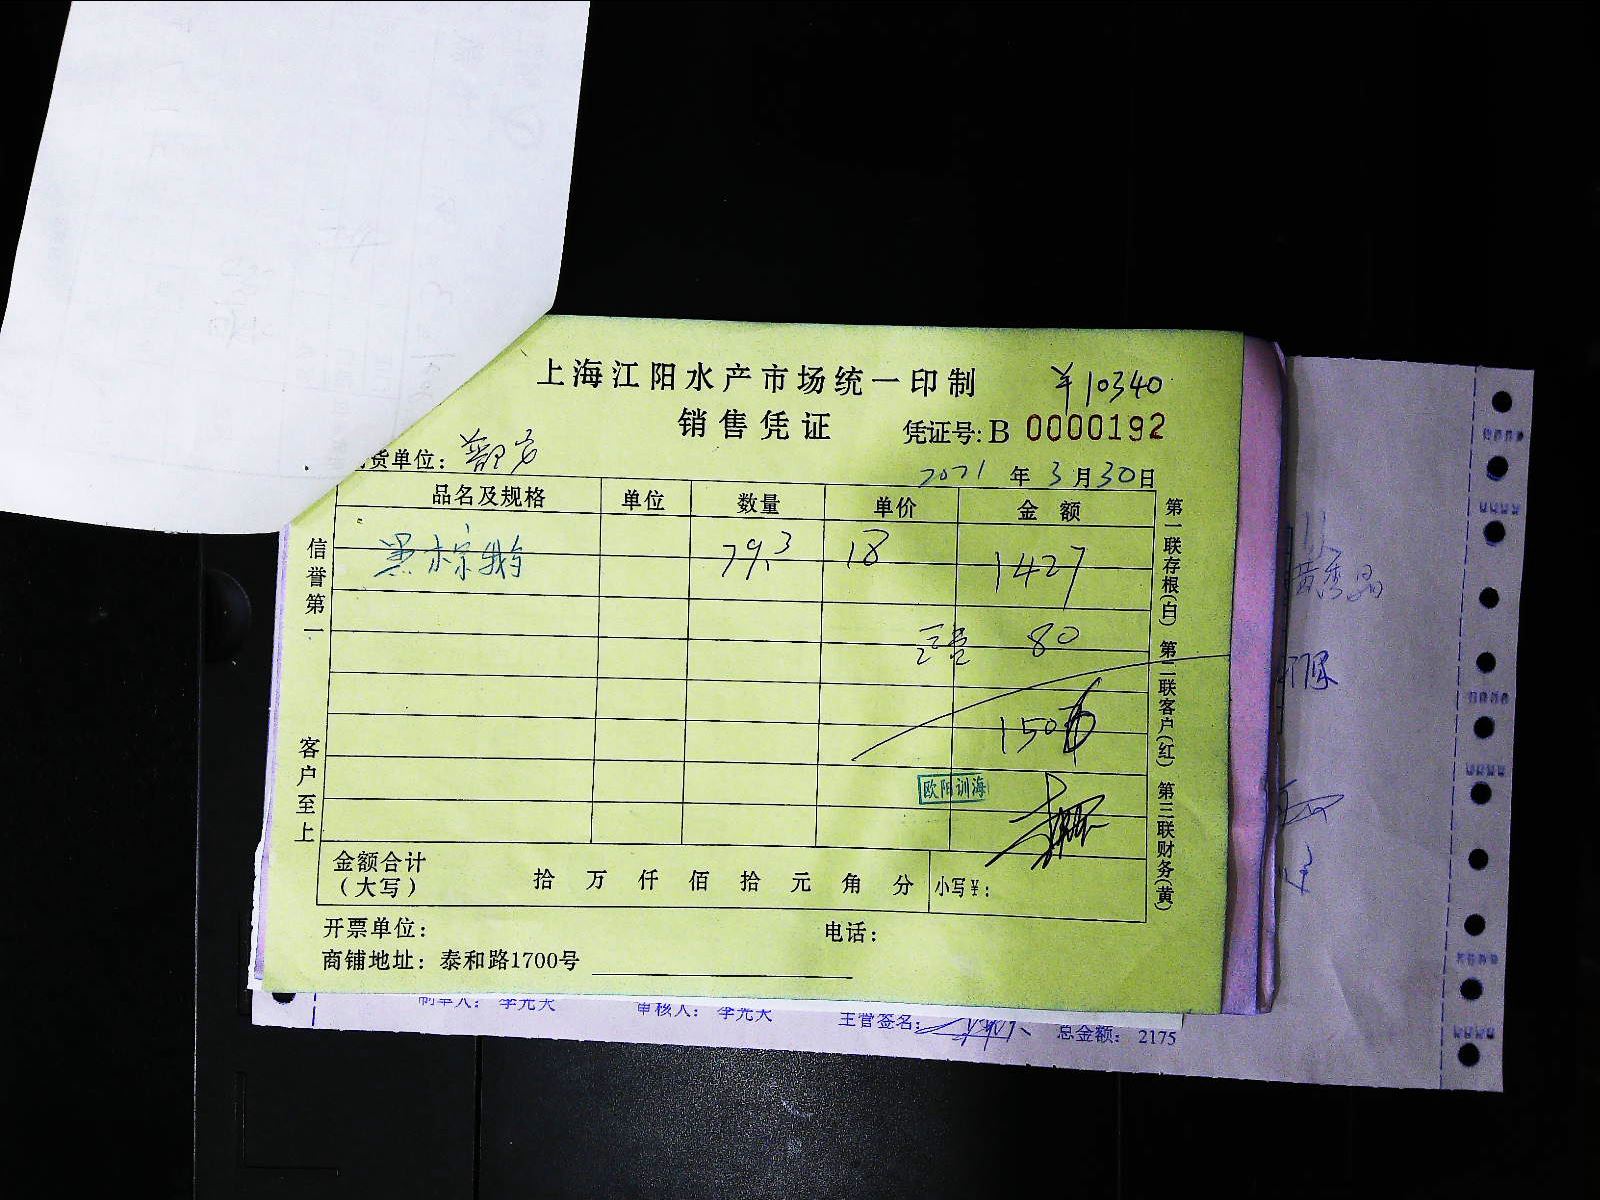 上海江阳水产市场统一印制
¥10340
销售凭证
凭证号: B 0000192
货单位:
2021 年 3 月 30 日
品名及规格 单位 数量 单价 金额
黑棕鹅 79.3 18 1427
80
150
欧阳训海
金额合计
(大写)
拾 万 仟 佰 拾 元 角 分 小写¥:
开票单位: 电话:
商铺地址: 泰和路1700号
信誉第一
客户至上
第一联存根(白) 第二联客户(红) 第三联财务(黄)
制单人: 李元天 审核人: 李元天 主管签名: 总金额: 2175